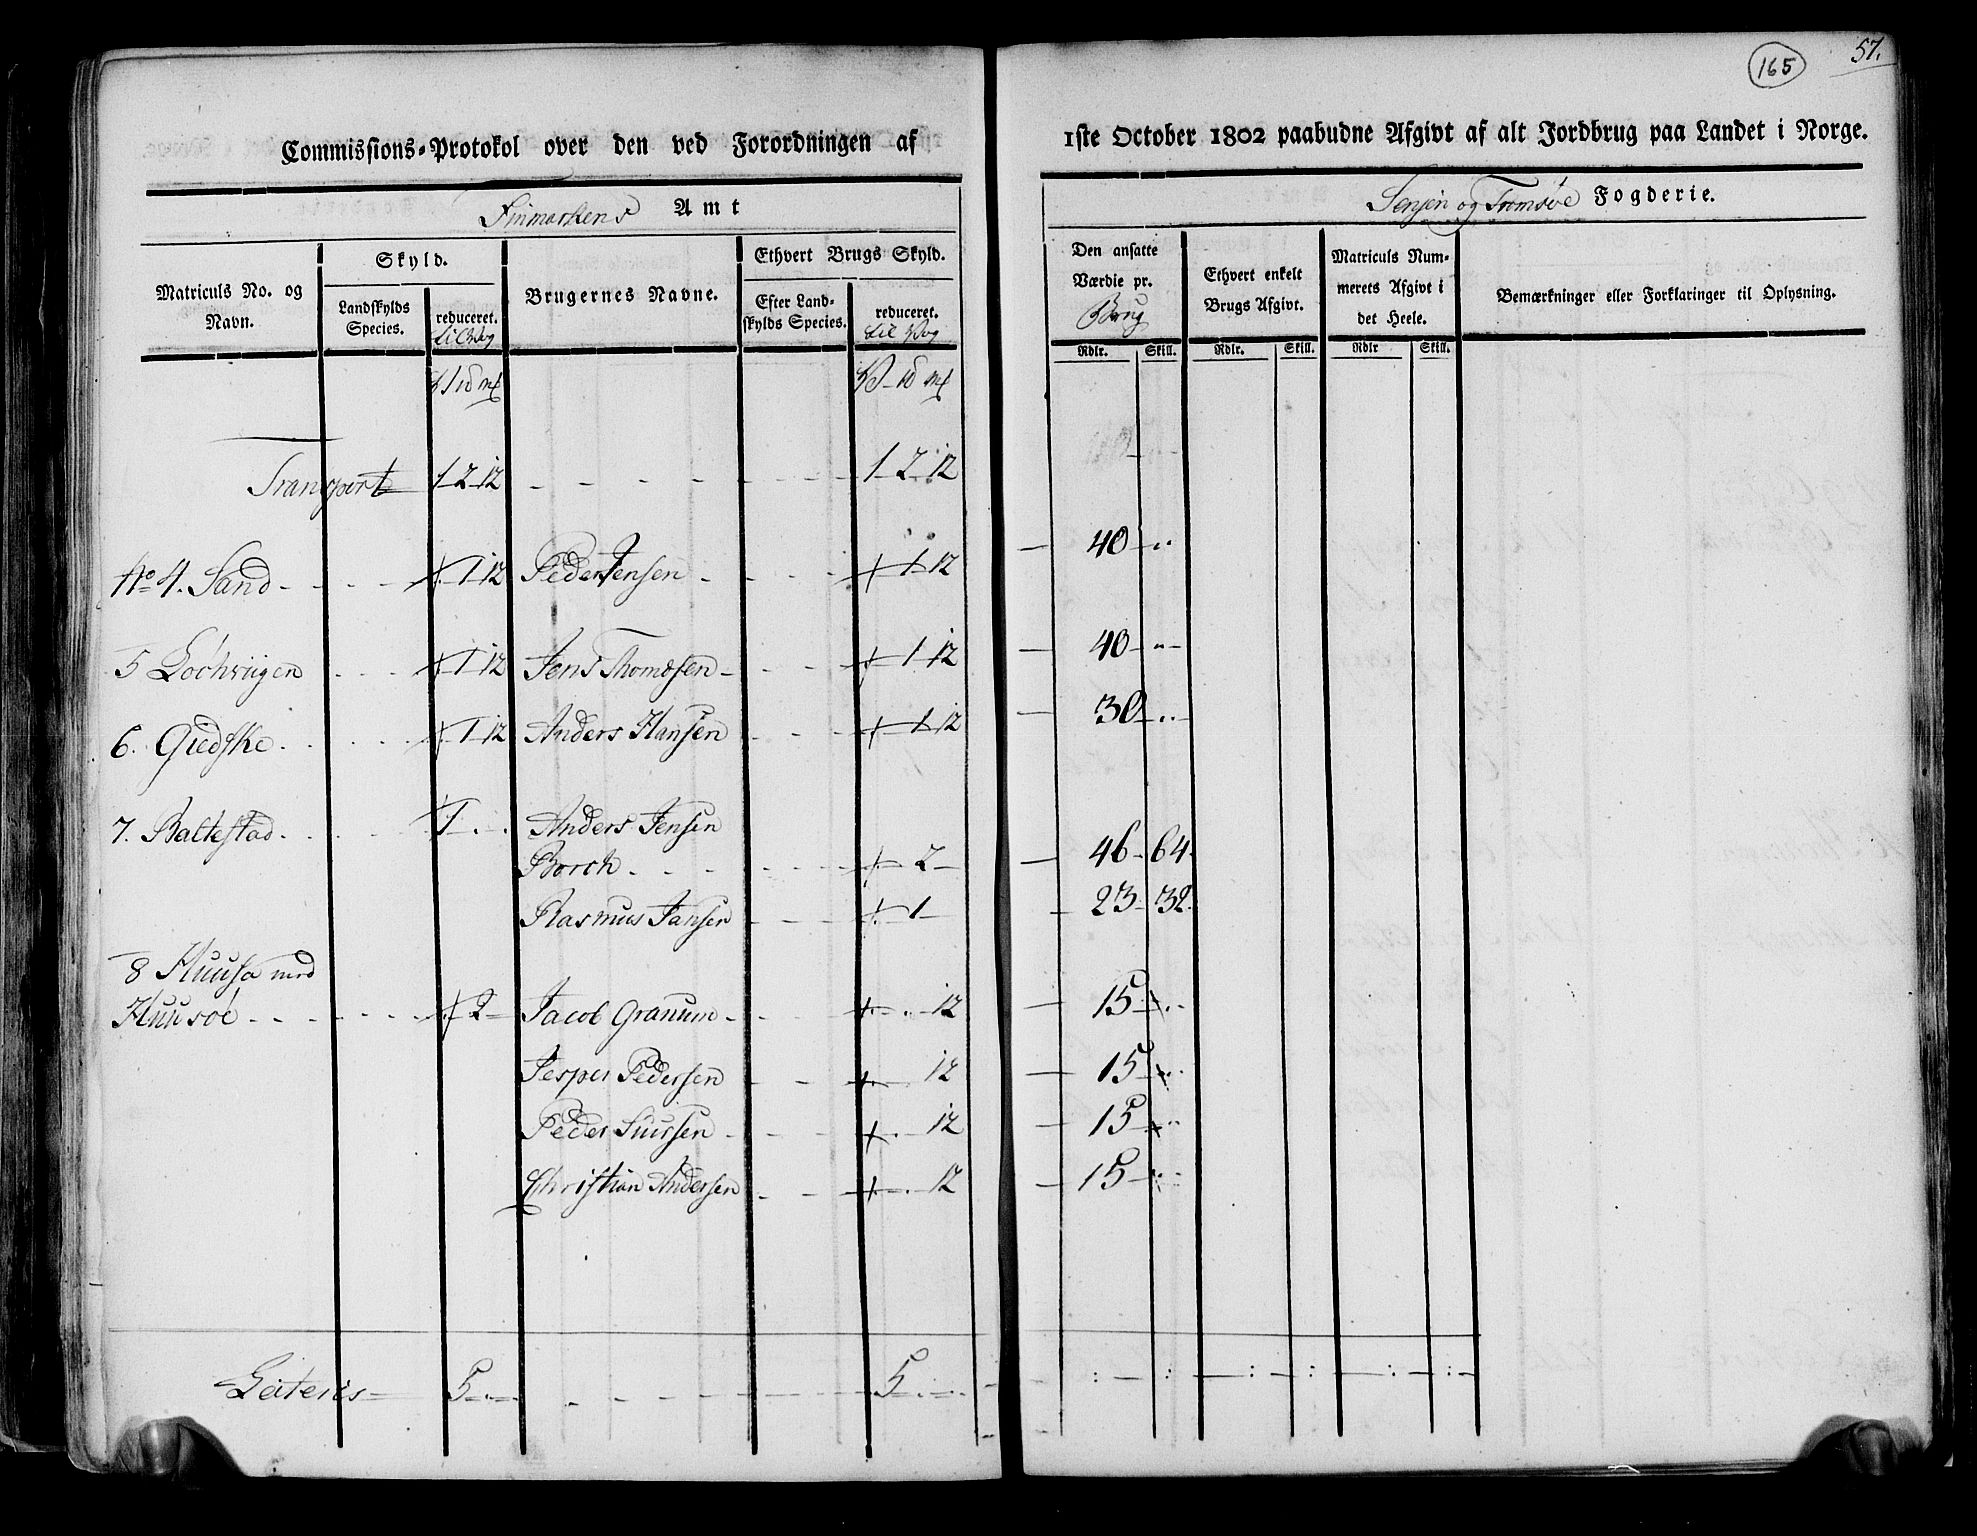 165
57.
Commissions-Protokol over den ved Forordningen af
1ste October 1802 paabudne Afgivt af alt Jordbrug paa Landet i Norge.
Finmarkens Amt
Senjen og Tromsöe Fogderie.
Matriculs No. og Navn.
Skyld.
Landskylds Species.
reduceret.
til Vog
Brugernes Navne.
Ethvert Brugs Skyld.
Efter Landskylds Species.
reduceret.
til Vog
Den ansatte Værdie pr.
Brug
Ethvert enkelt Brugs Afgivt.
Matriculs Nummerets Afgivt i det Heele.
Bemærkninger eller Forklaringer til Oplysning.
Rdlr. Skill. Rdlr. Skill. Rdlr Skill.
Transport 1 2 12 - - - - - 1 2 12
No 4. Sand - - - 1 12 Peder Jensen - - - 1 12 40 - ..
5 Lochviigen - - - 1 12 Jens Thomesen - - - 1 12 40 - ..
6. Giedske - - - 1 12 Anders Hansen - - - 1 12 30 - ..
7. Baltestad - - - 1 - . Anders Jensen
Borch - - - 2 - 46 64
Rasmus Jansen - - - 1 - 23 32
8 Huusa med
Huusöe - - - 2 - Jacob Granum - - - 12 15 - ..
Jesper Pedersen - - - 12 15 - ..
Peder Siursen - - - 12 15 - ..
Christian Andersen - - - 12 15 - ..
Lateris 5 - - - - - - 5 - -